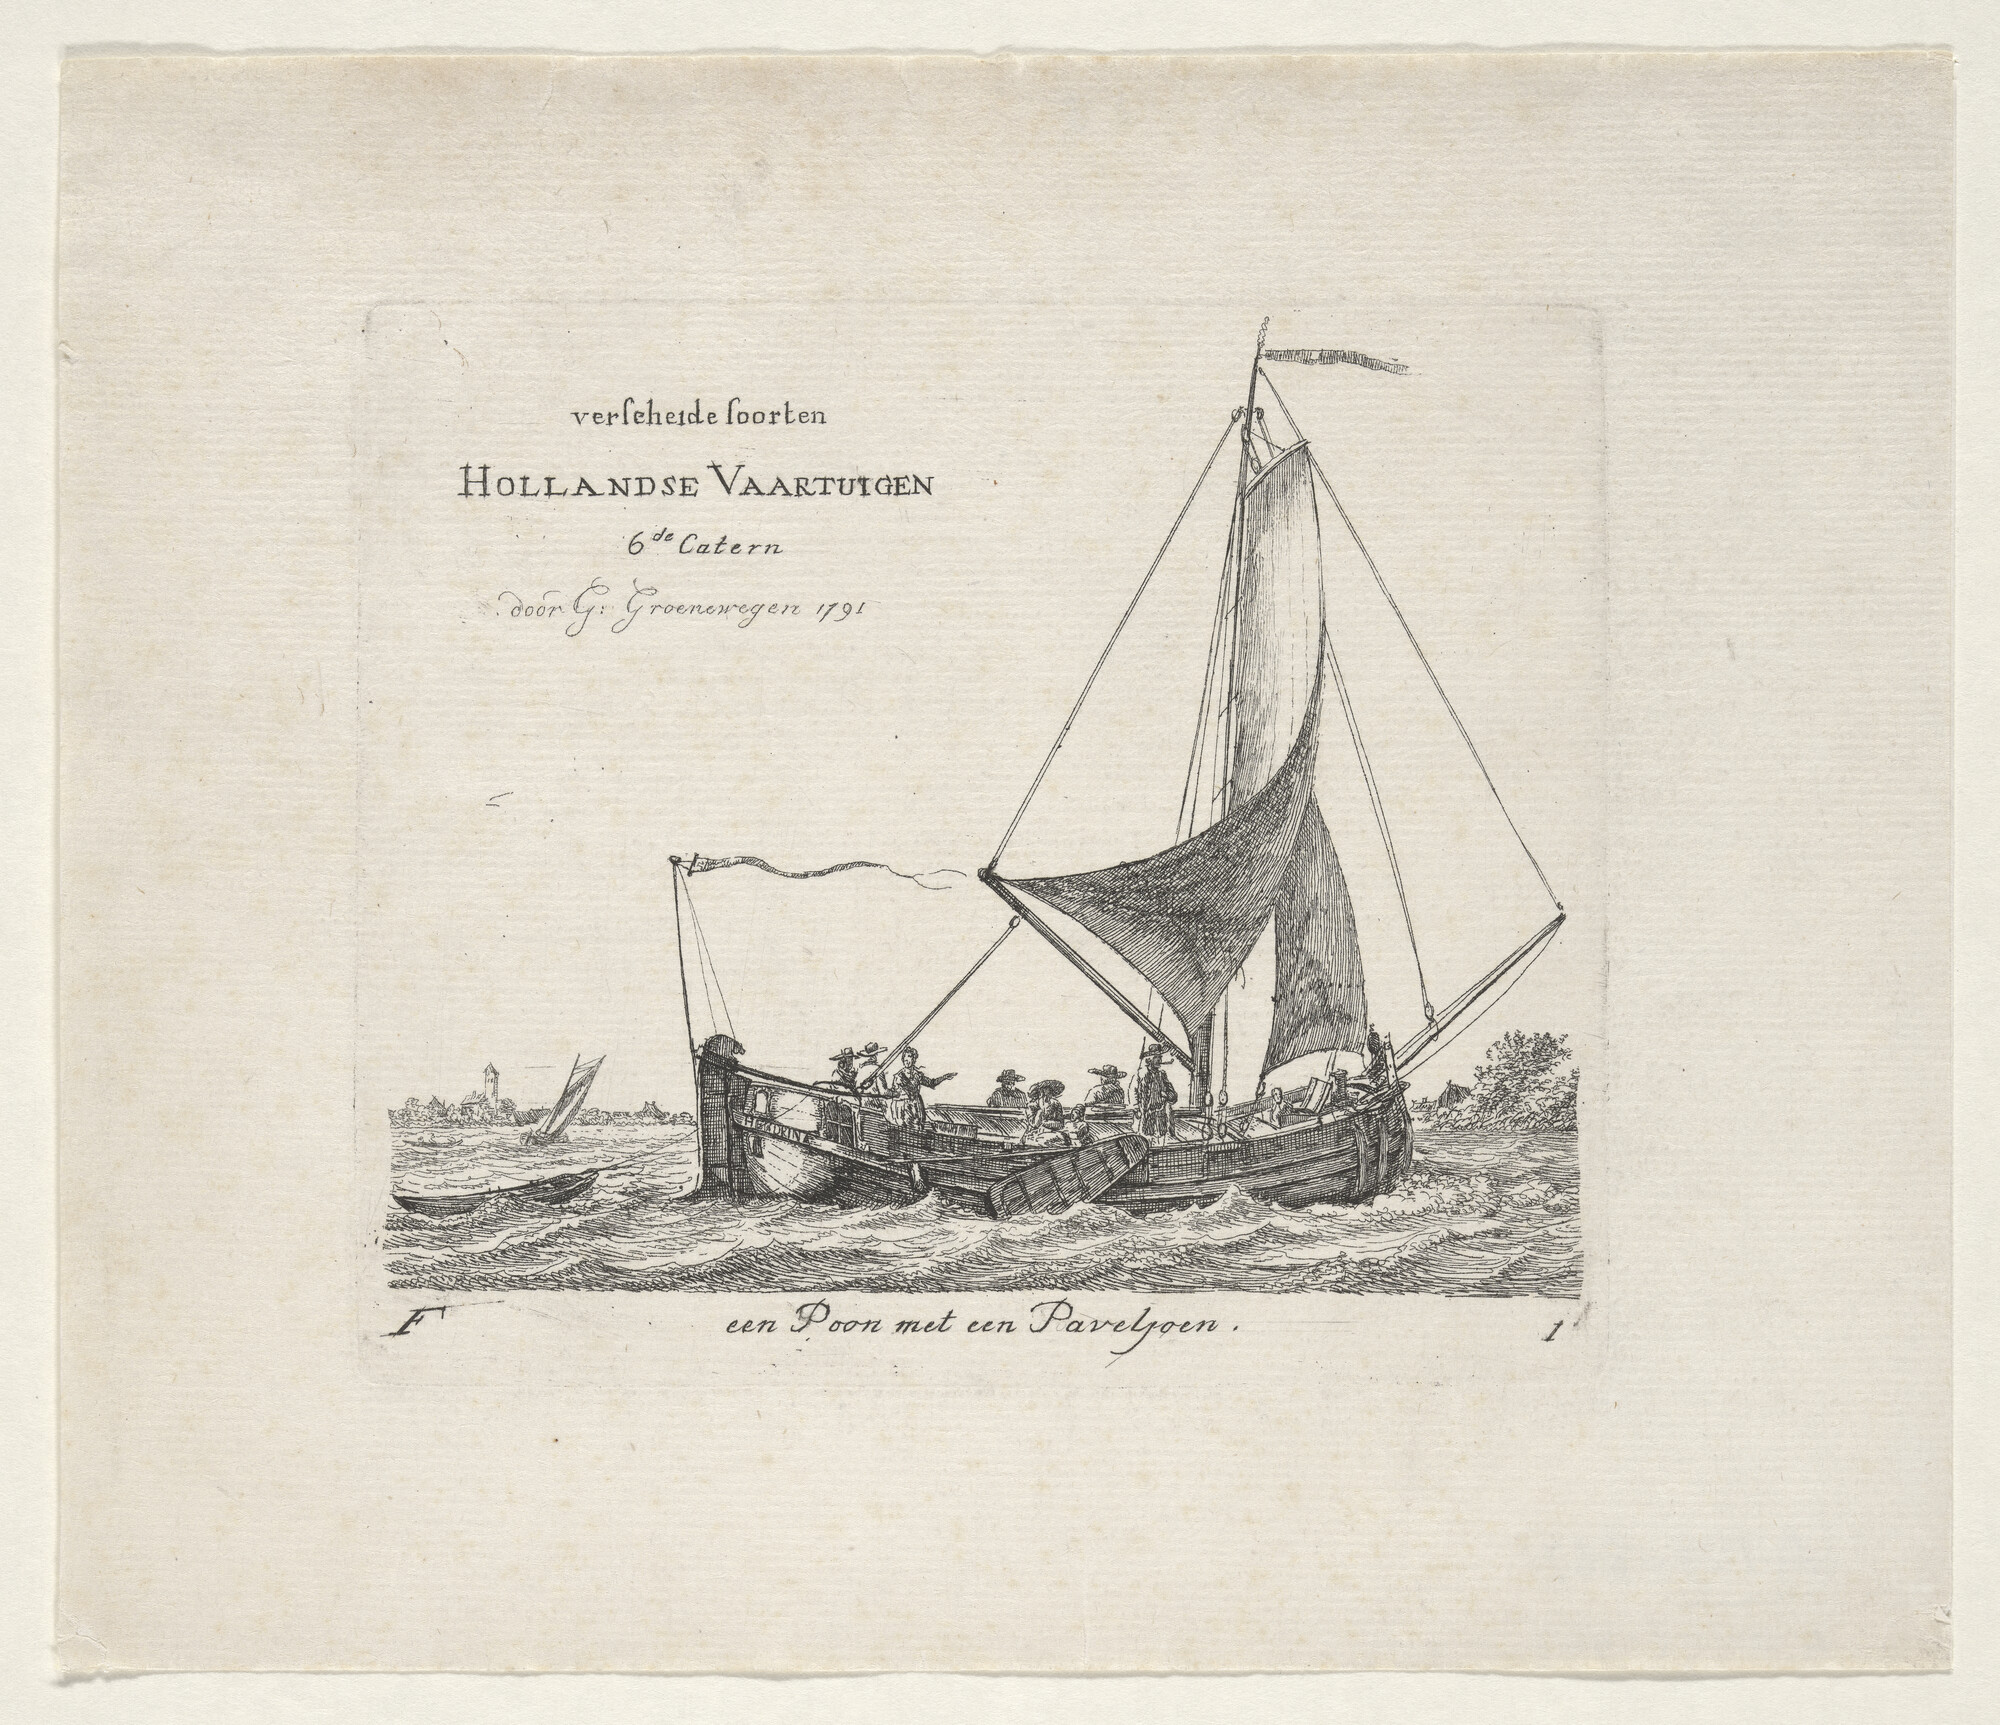 verſcheide ſoorten
HOLLANDSE VAARTUIGEN
6de Catern
door G: Groenewegen 1791
HENDRINA
F
een Poon met een Paveljoen.
1